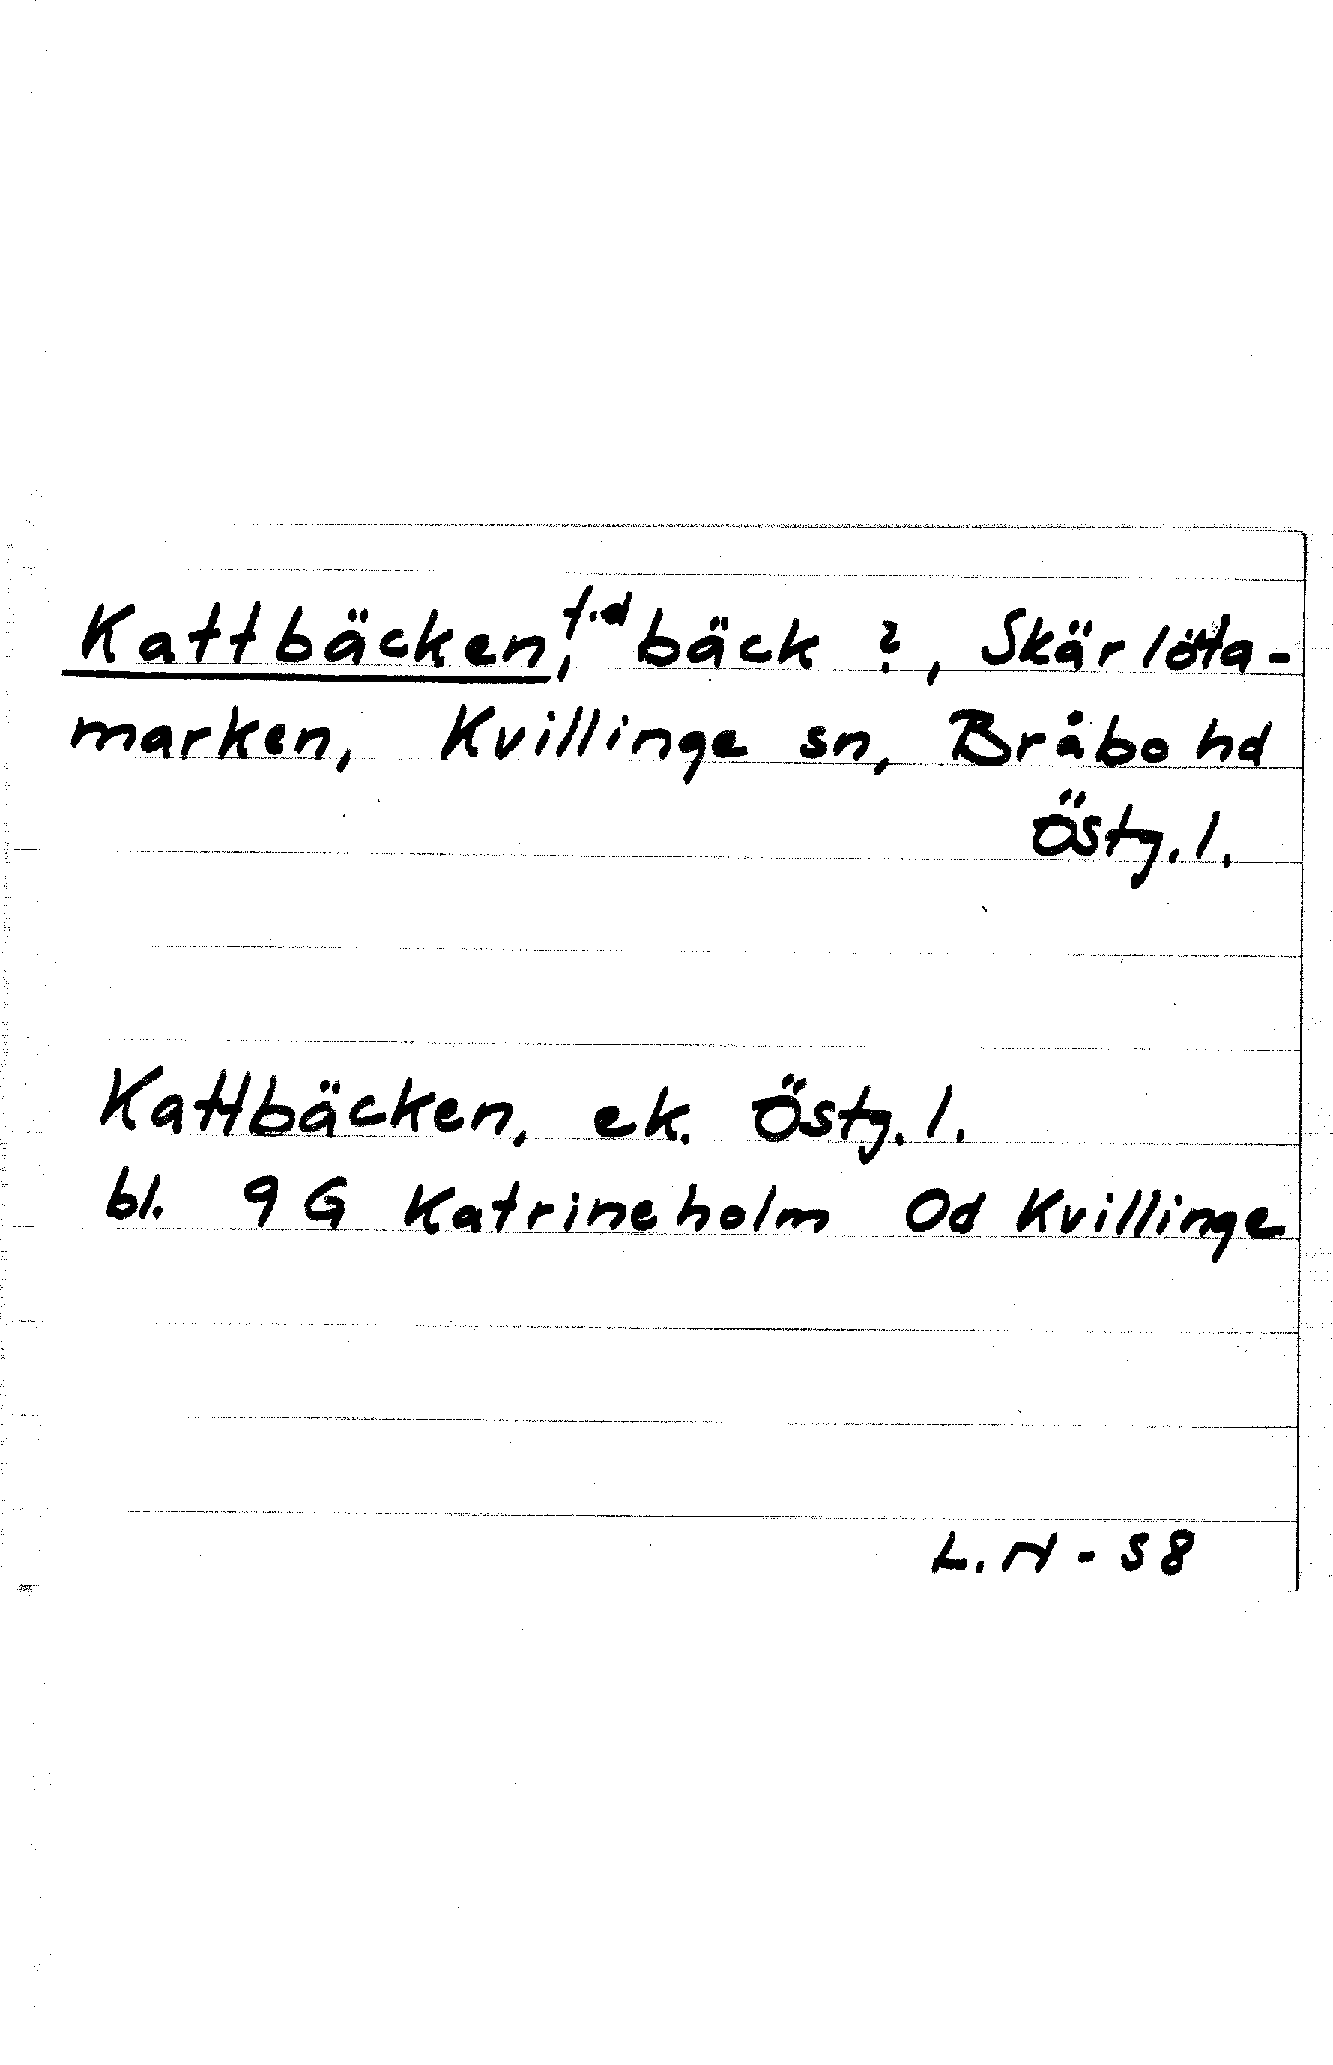 Kattbäcken, f.d bäck ?, Skärlöta-
marken, Kvillinge sn, Bråbo hd
Östg. l.
Kattbäcken, ek. Östg. l.
bl. 9 G Katrineholm Od Kvillinge
L. N - 58